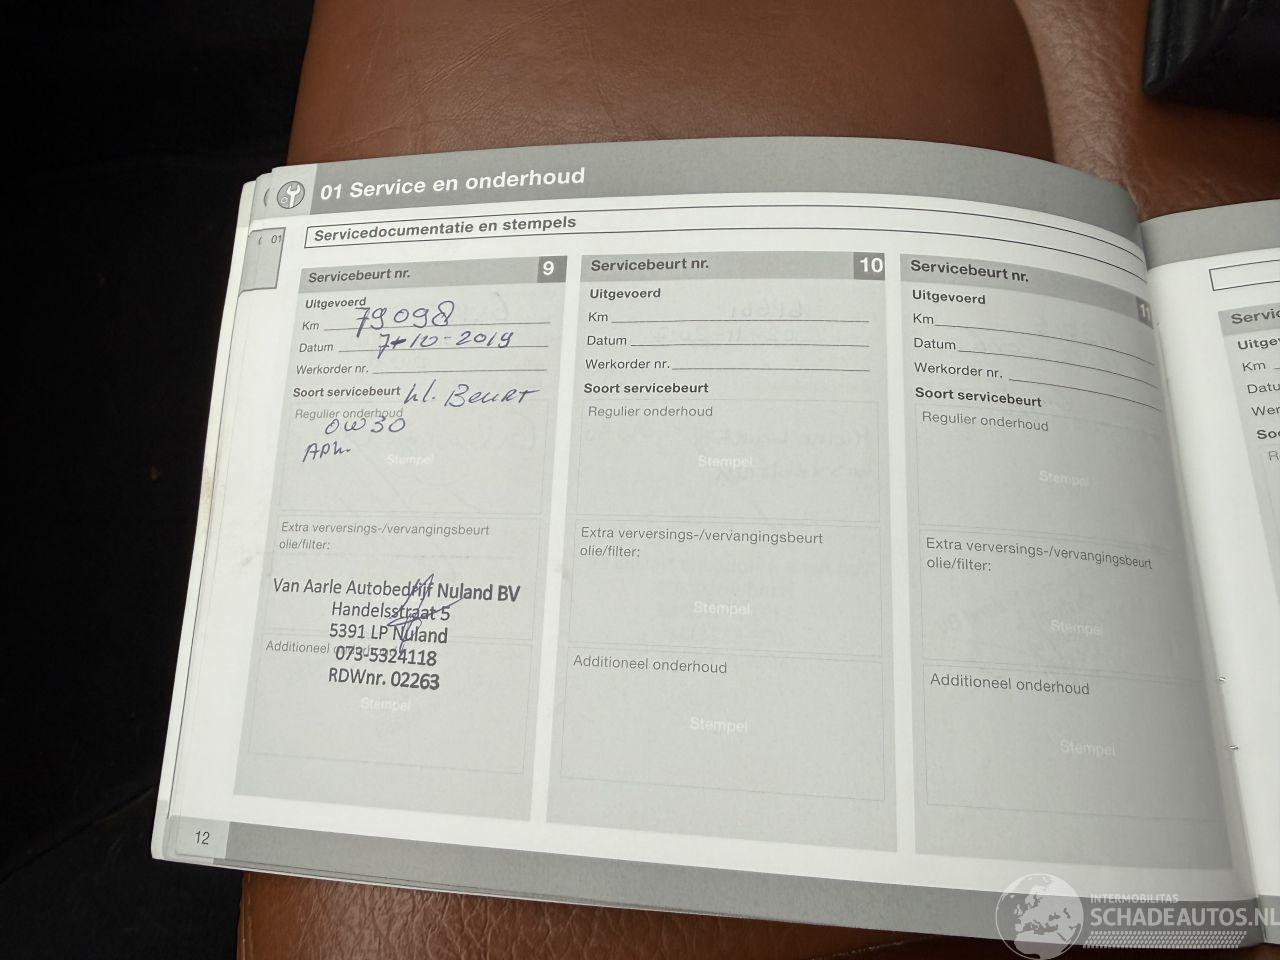 01 Service en onderhoud
01
Servicedocumentatie en stempels
Servicebeurt nr. 9
Uitgevoerd
Km 79098
Datum 7-10-2019
Werkorder nr.
Soort servicebeurt kl. Beurt
Regulier onderhoud
0W30
APK.
Stempel
Extra verversings-/vervangingsbeurt
olie/filter:
Van Aarle Autobedrijf Nuland BV
Handelsstraat 5
5391 LP Nuland
Additioneel
073-5324118
RDWnr. 02263
Stempel
Servicebeurt nr. 10
Uitgevoerd
Km
Datum
Werkorder nr.
Soort servicebeurt
Regulier onderhoud
Stempel
Extra verversings-/vervangingsbeurt
olie/filter:
Stempel
Additioneel onderhoud
Stempel
Servicebeurt nr. 11
Uitgevoerd
Km
Datum
Werkorder nr.
Soort servicebeurt
Regulier onderhoud
Stempel
Extra verversings-/vervangingsbeurt
olie/filter:
Stempel
Additioneel onderhoud
Stempel
12
Km
INTERMOBILITAS
SCHADEAUTOS.NL